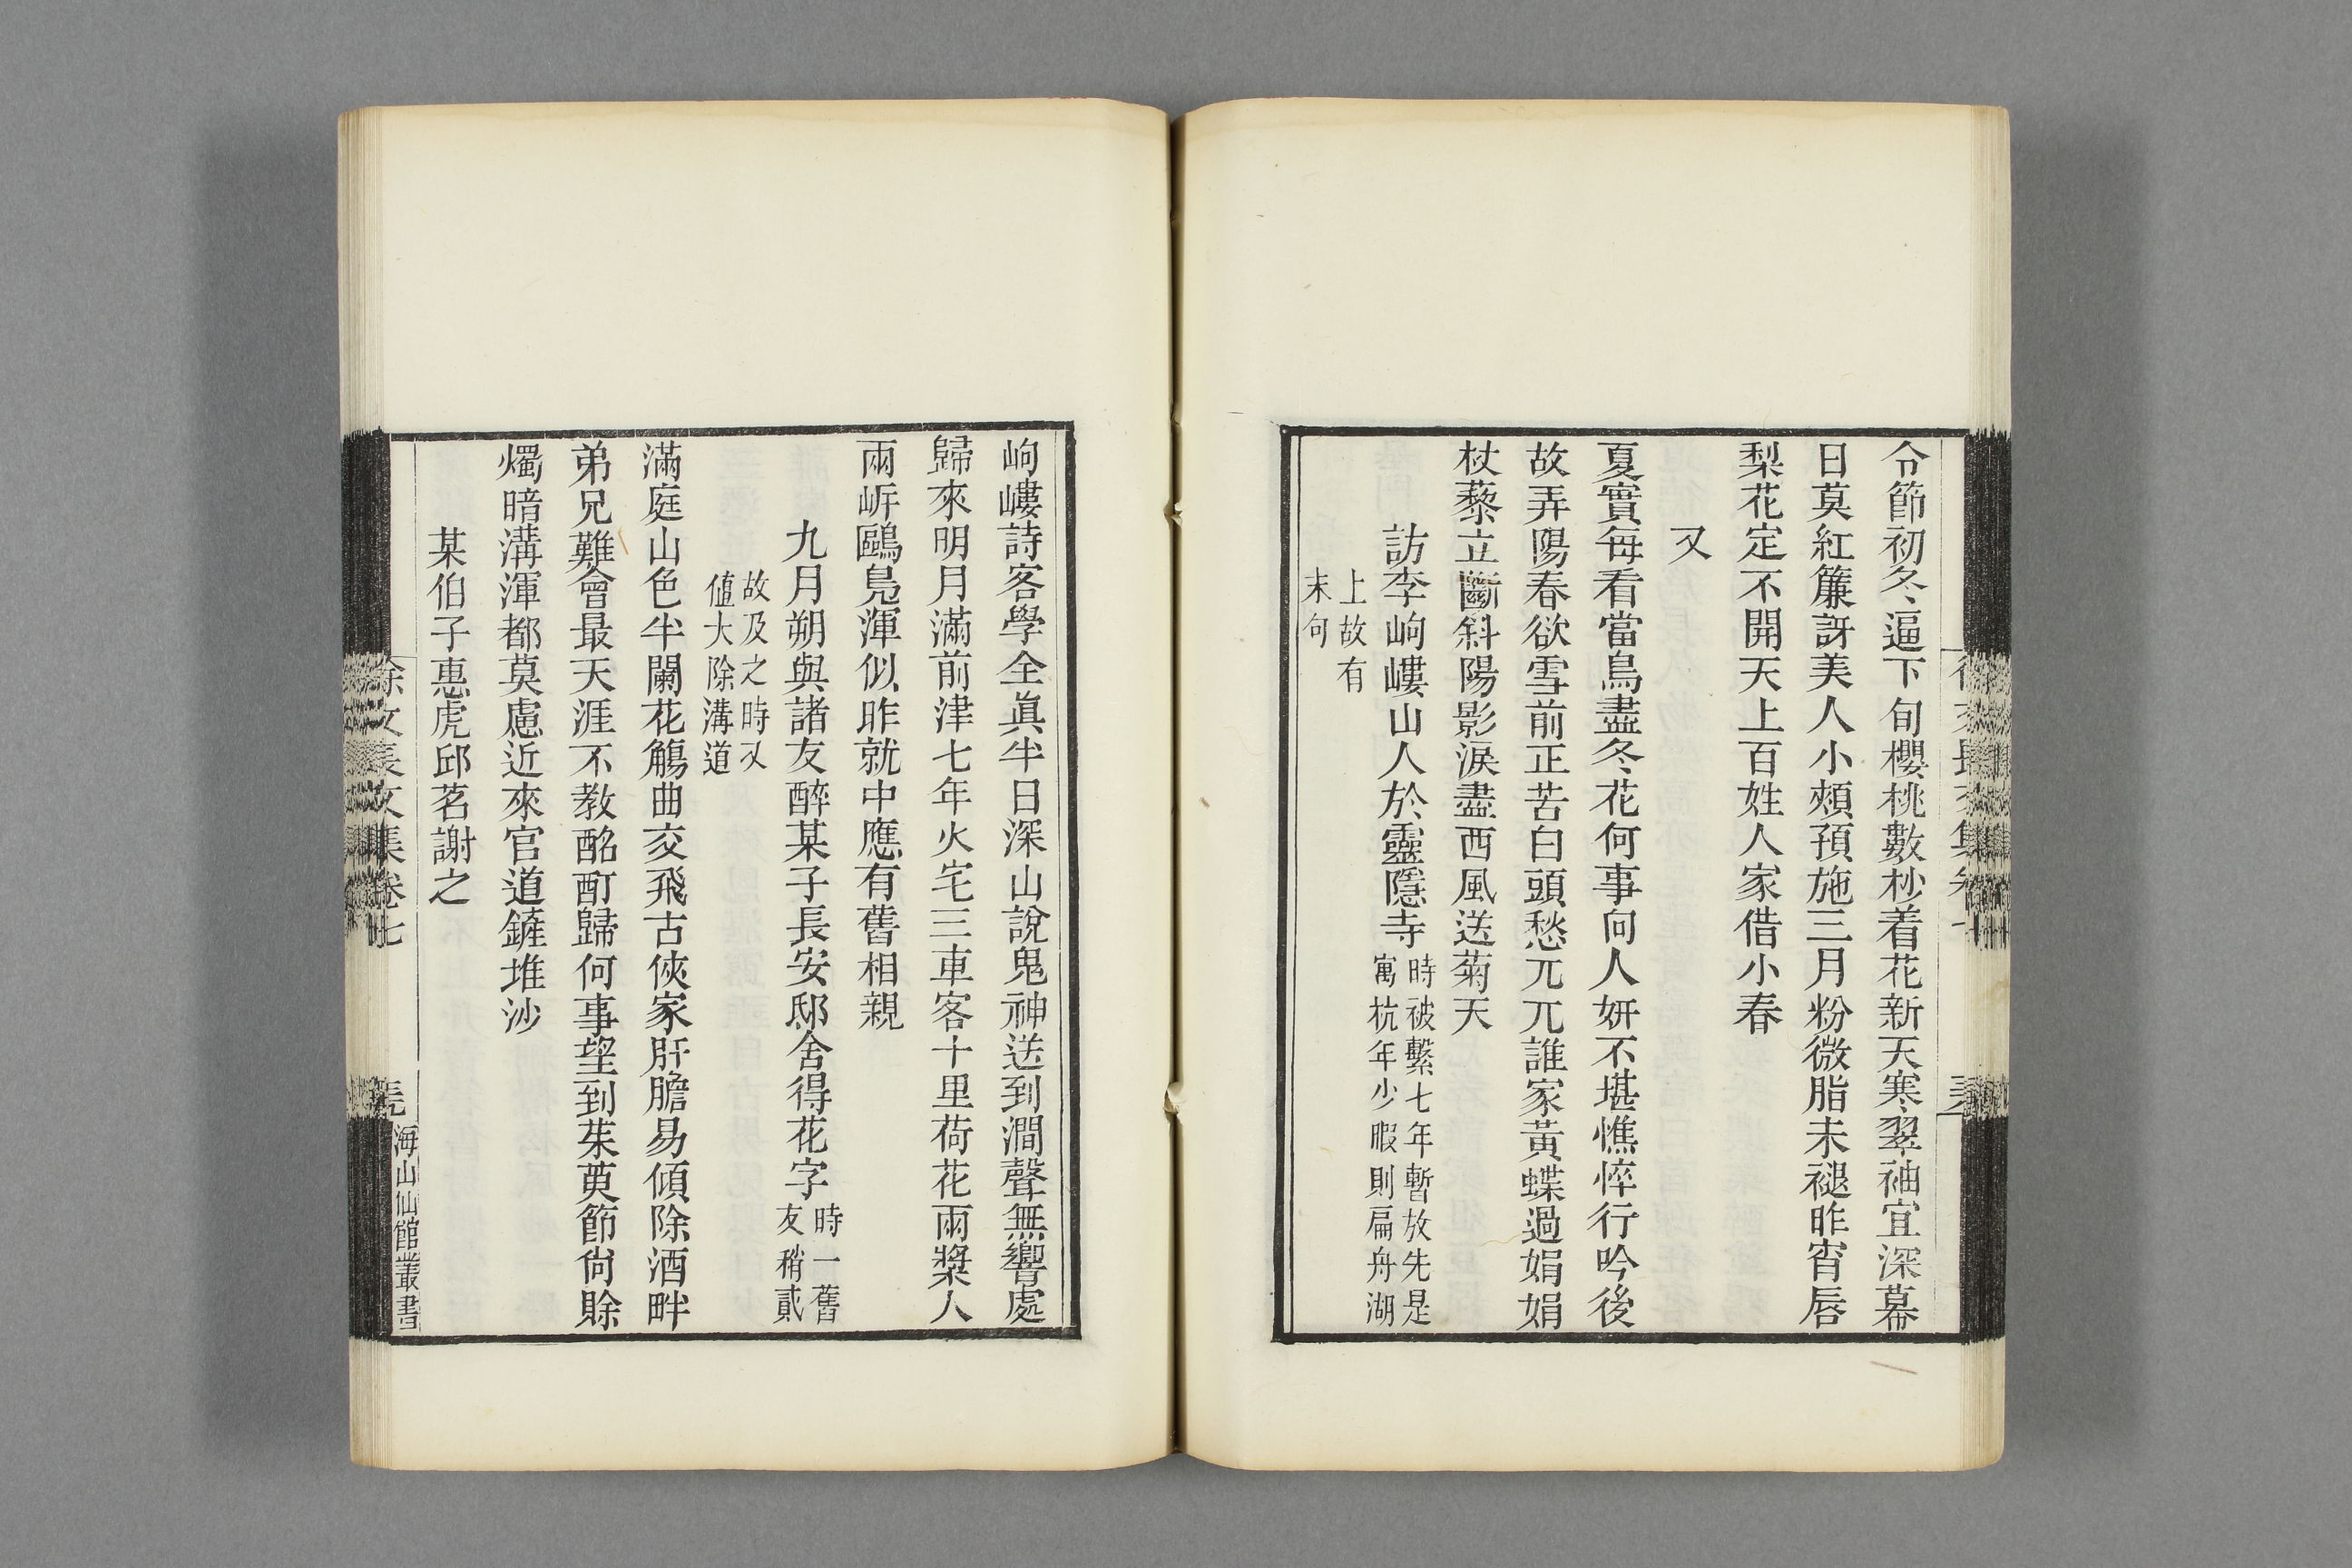 令節初冬逼下旬櫻桃數杪着花新天寒翠袖宜深幕
日莫紅簾訝美人小頰預施三月粉微脂未褪昨宵唇
梨花定不開天上百姓人家借小春
又
夏實每看當鳥盡冬花何事向人妍不堪憔悴行吟後
故弄陽春欲雪前正苦白頭愁兀兀誰家黃蝶過娟娟
杖藜立斷斜陽影淚盡西風送菊天
訪李岣嶁山人於靈隱寺
時被繫七年暫放先是
寓杭年少暇則扁舟湖
上故有
末句
岣嶁詩客學全眞半日深山說鬼神送到澗聲無響處
歸來明月滿前津七年火宅三車客十里荷花兩槳人
兩岸鷗鳧渾似昨就中應有舊相親
九月朔與諸友醉某子長安邸舍得花字
時一舊
友稍貳
故及之時又
値大除溝道
滿庭山色半闌花觴曲交飛古俠家肝膽易傾除酒畔
弟兄難會最天涯不教酩酊歸何事望到茱萸節尙賒
燭暗溝渾都莫慮近來官道鏟堆沙
某伯子惠虎邱茗謝之
徐文長文集卷七
海山仙館叢書